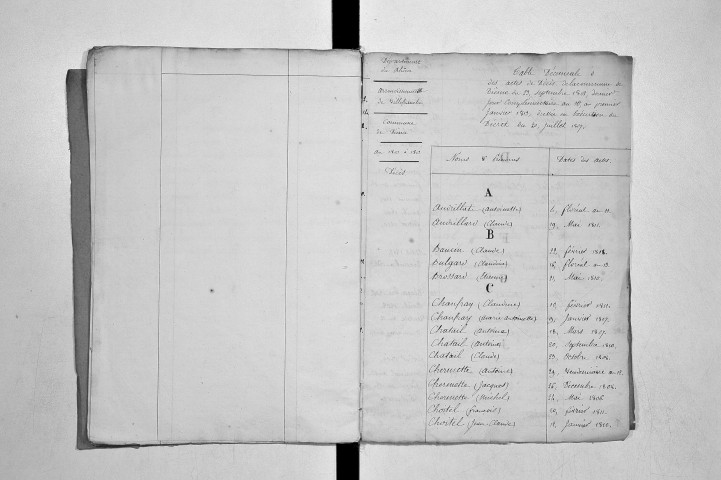 Département
du Rhône
Arrondissement
de Villefranche
Commune
de
an 1802 à 1812
Décès
Table Décennale
des actes de Décès de la commune de
du 23 septembre 1802, dernier
jour complémentaire au 10 a premier
janvier 1813, dressée en exécution du
Décret du 20 juillet 1807.
Noms & Prénoms
Dates des actes
A
Audrillat (Antoinette) floréal an
Audrillard (Claude) 19, Mai
B
Bauen (Claude) février
Bulgard (Claudine) floréal an
Brossard (Etienne) 11, Mai 1810
C
Chanfray (Claudine) 10, février 1811
Chanfray (Marie Antoinette) janvier 1807
Chatail (Antoine) 18, Mars 1807
Chatail (Antoine) 20, septembre 1810
Chatail (Claude) 23, octobre 1808
Chermette (Antoine) 29, Vendémiaire an
Chermette (Jacques) 26, Décembre 1808
Chermette (Michel) 24, Mai 1806
Chostel (françois) février 1811
Chostel (Jean Claude) janvier 1810